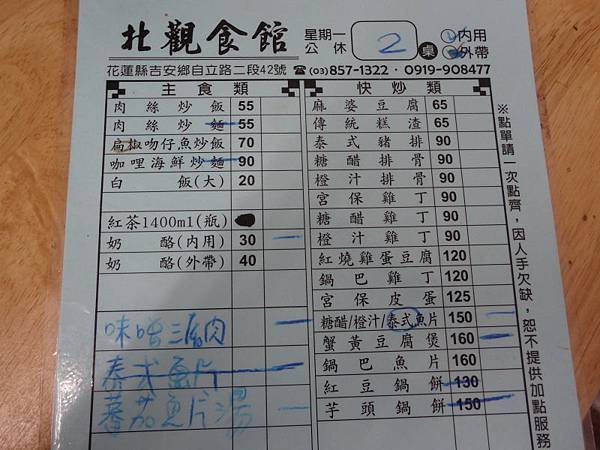 北觀食館
星期一公休
2 桌
①內用
②外帶
花蓮縣吉安鄉自立路二段42號 ☎(03)857-1322・0919-908477
主食類
肉絲炒飯 55
肉絲炒麵 55
扁椒吻仔魚炒飯 70
咖哩海鮮炒麵 90
白飯(大) 20
紅茶1400ml(瓶)
奶酪(內用) 30 一
奶酪(外帶) 40
味噌三層肉 一
泰式魚片
蕃茄魚片湯 一
快炒類
麻婆豆腐 65
傳統糕渣 65
泰式豬排 90
糖醋排骨 90
橙汁排骨 90
宮保雞丁 90
糖醋雞丁 90
橙汁雞丁 90
紅燒雞蛋豆腐 120
鍋巴雞丁 120
宮保皮蛋 125
糖醋/橙汁/泰式魚片 150 一
蟹黃豆腐煲 160 一
鍋巴魚片 160
紅豆鍋餅 130
芋頭鍋餅 150
※點單請一次點齊，因人手欠缺，恕不提供加點服務